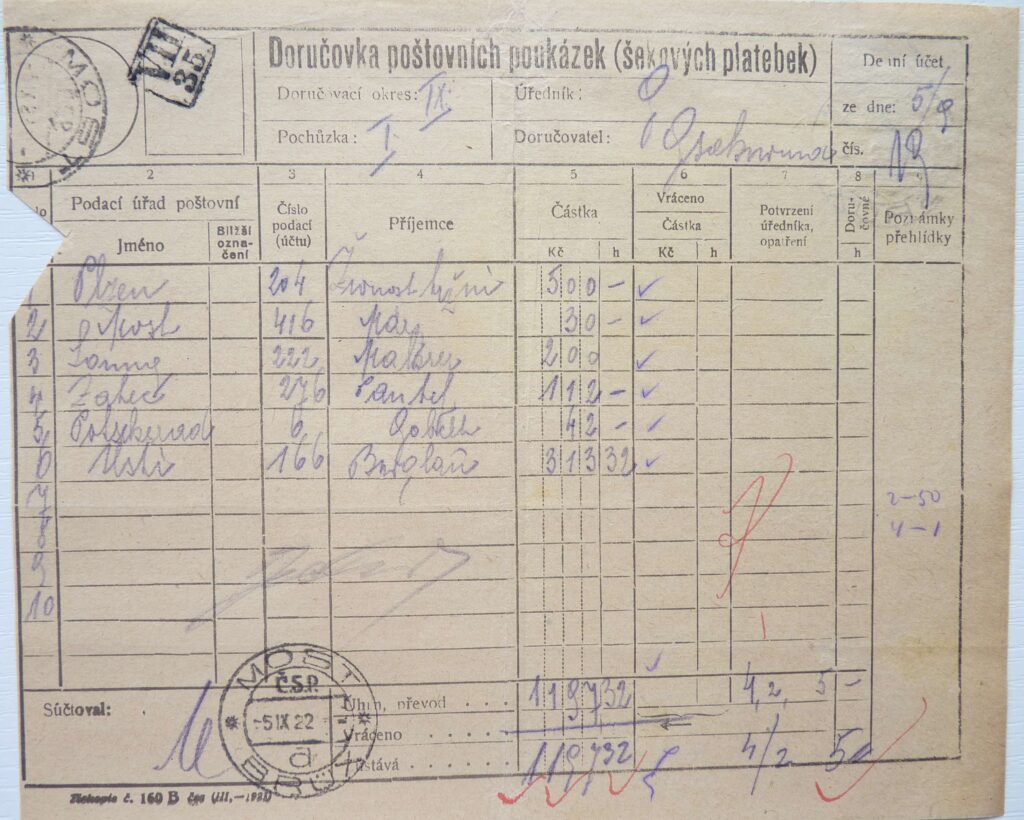 MOST
VII
35
Doručovka poštovních poukázek (šekových platebek)
Denní účet
Doručovací okres: IX.
Úředník:
ze dne: 5/9
Pochůzka: I.
Doručovatel:
čís. 19
1 2 3 4 5 6 7 8
Podací úřad poštovní
Jméno
Bližší označení
Číslo podací (účtu)
Příjemce
Částka
Kč h
Vráceno
Částka
Kč h
Potvrzení úředníka, opatření
Doručovné
h
Poznámky přehlídky
1 Plzen 204 500 –
2 Most 416 30 –
3 222 200
4 Zatec 276 112 –
5 6 42 –
6 Usti 166 313 32
7
8
9
10
2–50
4–1
Súčtoval:
Úhrn, převod . . . . 1197 32 4,2, 5 –
Vráceno . . . . .
Zůstává . . . . . . 1197 32 4/2 5
MOST
Č.S.P.
-5 IX 22 -
a
BRÜX
Tiskopis č. 160 B čsp (III.—1921)